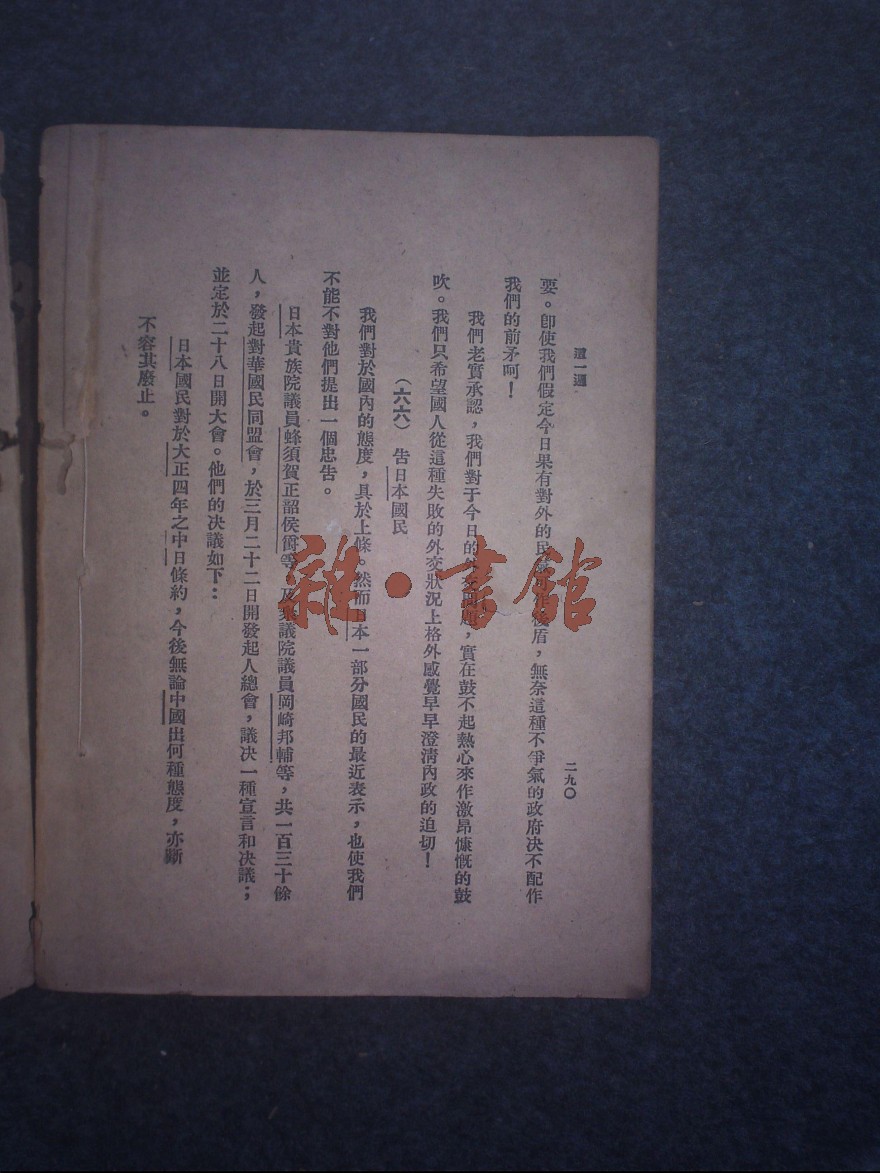 這一週
二九〇
要。卽使我們假定今日果有對外的民氣可作後盾，無奈這種不爭氣的政府决不配作
我們的前矛呵！
我們老實承認，我們對于今日的外交問題，實在鼓不起熱心來作激昂慷慨的鼓
吹。我們只希望國人從這種失敗的外交狀況上格外感覺早早澄淸內政的迫切！
（六六） 告日本國民
我們對於國內的態度，具於上條。然而日本一部分國民的最近表示，也使我們
不能不對他們提出一個忠告。
日本貴族院議員蜂須賀正韶侯爵等，及衆議院議員岡崎邦輔等，共一百三十餘
人，發起對華國民同盟會，於三月二十二日開發起人總會，議决一種宣言和决議；
並定於二十八日開大會。他們的决議如下：
日本國民對於大正四年之中日條約，今後無論中國出何種態度，亦斷
不容其廢止。
雜·書館